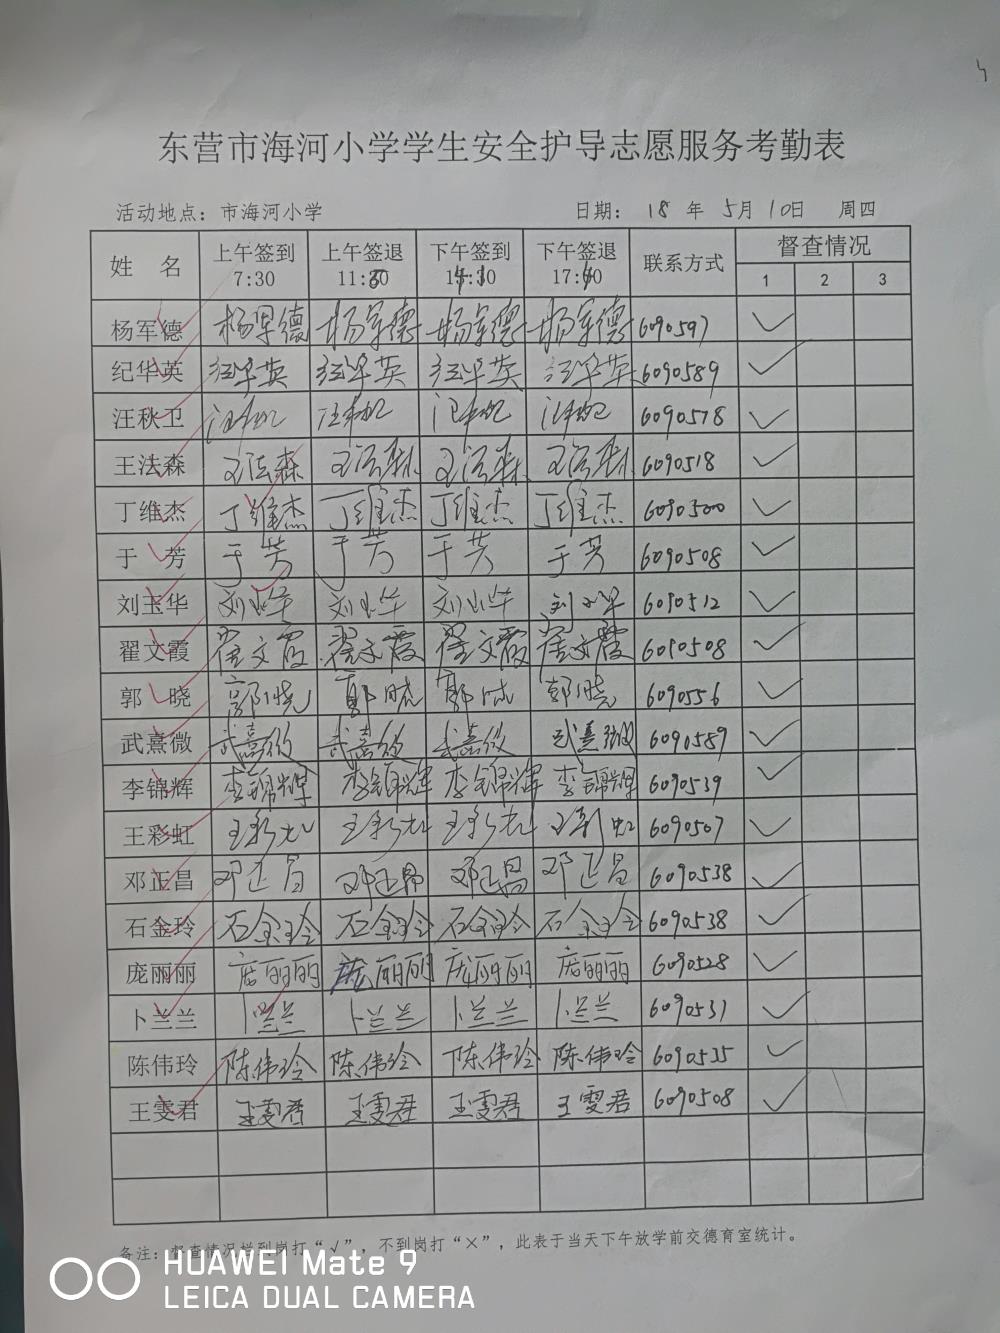 东营市海河小学学生安全护导志愿服务考勤表
活动地点：市海河小学 日期： 18 年 5月 10日 周四
姓 名 上午签到 上午签退 下午签到 下午签退 联系方式 督查情况
7:30 1 2 3
杨军德 杨军德 杨军德 杨军德 杨军德 6090597 ✓
纪华英 纪华英 纪华英 纪华英 纪华英 6090589 ✓
汪秋卫 6090578 ✓
王法森 王法森 王法森 王法森 王法森 6090518 ✓
丁维杰 丁维杰 丁维杰 丁维杰 丁维杰 6090500 ✓
于 芳 于芳 于芳 于芳 于芳 6090508 ✓
刘玉华 刘玉华 刘玉华 刘玉华 刘玉华 6090512 ✓
翟文霞 翟文霞 翟文霞 翟文霞 翟文霞 6090508 ✓
郭 晓 郭晓 郭晓 郭晓 郭晓 6090556 ✓
武熹微 武熹微 武熹微 武熹微 武熹微 6090589 ✓
李锦辉 李锦辉 李锦辉 李锦辉 李锦辉 6090539 ✓
王彩虹 王彩虹 王彩虹 王彩虹 王彩虹 6090507 ✓
邓正昌 邓正昌 邓正昌 邓正昌 邓正昌 6090538 ✓
石金玲 石金玲 石金玲 石金玲 石金玲 6090538 ✓
庞丽丽 庞丽丽 庞丽丽 庞丽丽 庞丽丽 6090528 ✓
卜兰兰 卜兰兰 卜兰兰 卜兰兰 卜兰兰 6090531 ✓
陈伟玲 陈伟玲 陈伟玲 陈伟玲 陈伟玲 6090535 ✓
王雯君 王雯君 王雯君 王雯君 王雯君 6090508 ✓
备注：督查情况栏到岗打“√”，不到岗打“×”，此表于当天下午放学前交德育室统计。
HUAWEI Mate 9
LEICA DUAL CAMERA